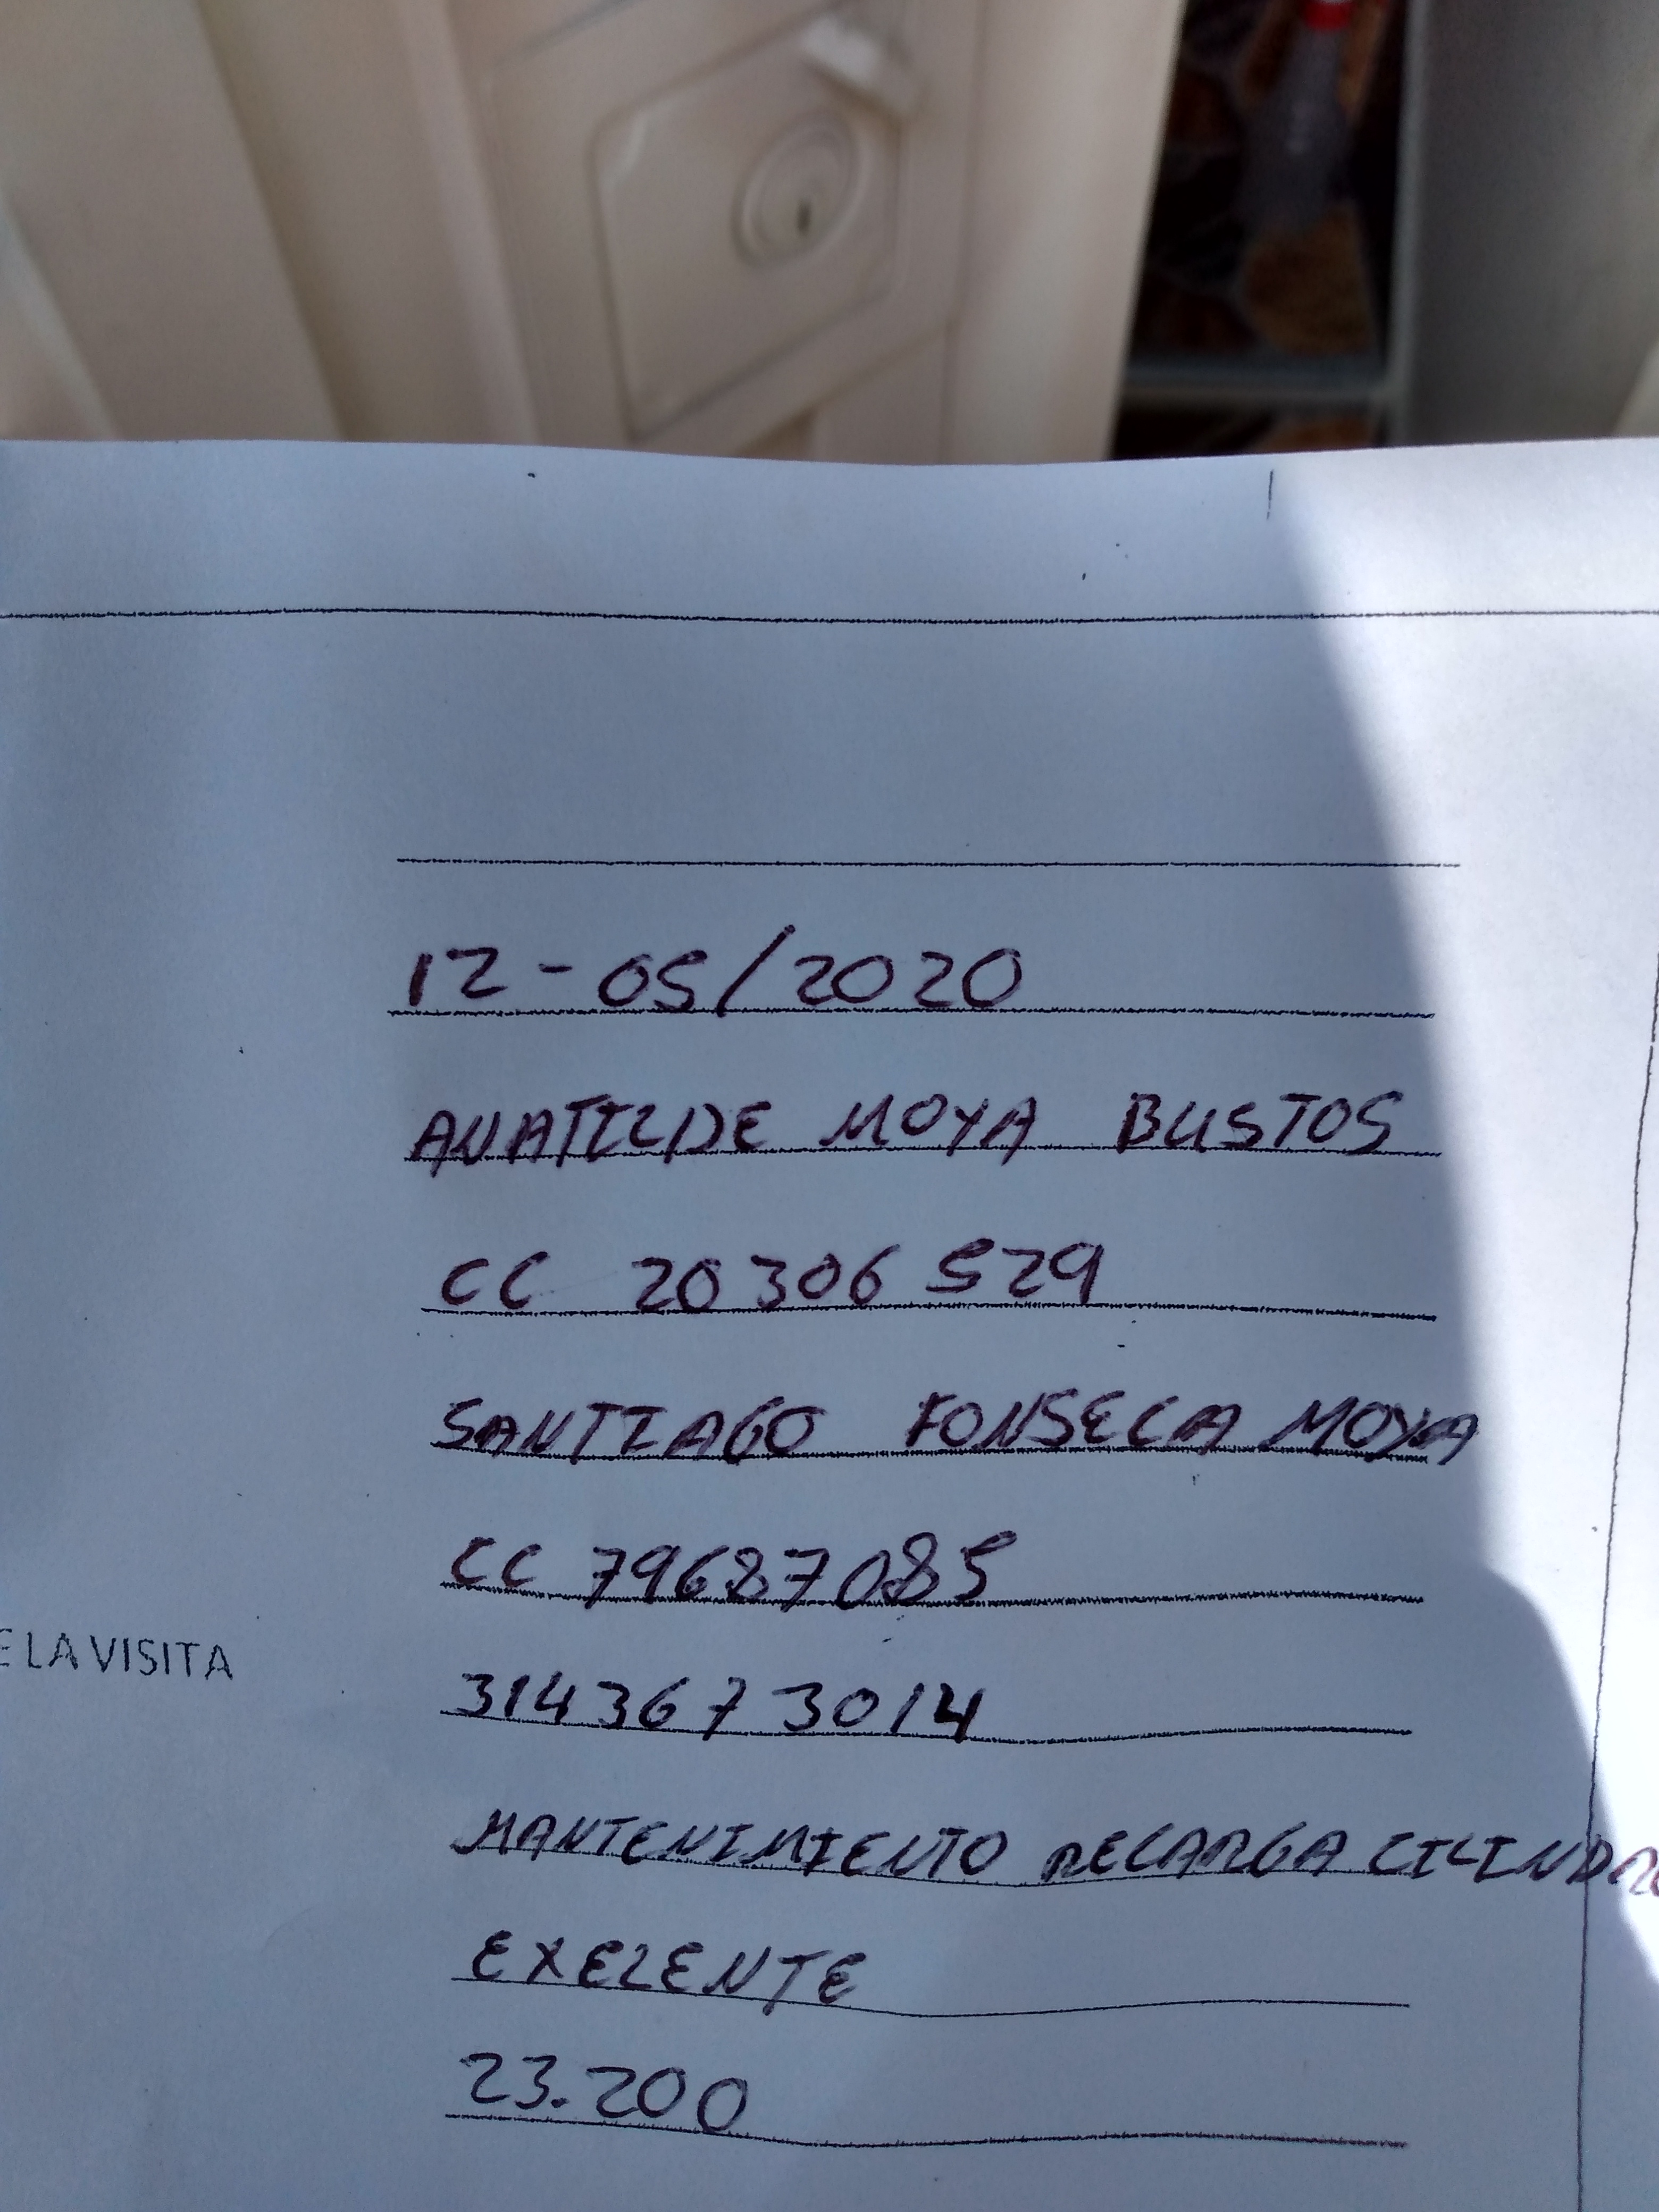 12-05/2020
ANATILDE MOYA BUSTOS
CC 20306529
SANTIAGO FONSECA MOYA
CC 79687085
E LA VISITA
3143673014
MANTENIMIENTO RECARGA CILINDRO
EXELENTE
23.200